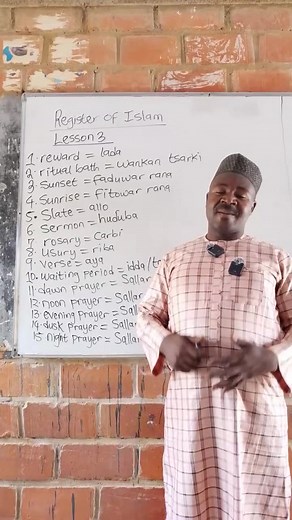 Register of Islam
Lesson 3
1. reward = lada
2. ritual bath = wankan tsarki
3. sunset = faduwar rana
4. Sunrise = fitowar rana
5. Slate = allo
6 Sermon = huduba
7 rosary = Carbi
8. Usury = riba
9. Verse = aya
10. waiting period = idda/
11. dawn prayer = Sallar
12. noon prayer = Sallar
13. evening prayer = Sallar
14. dusk prayer = Sallar
15. night prayer = Sallar